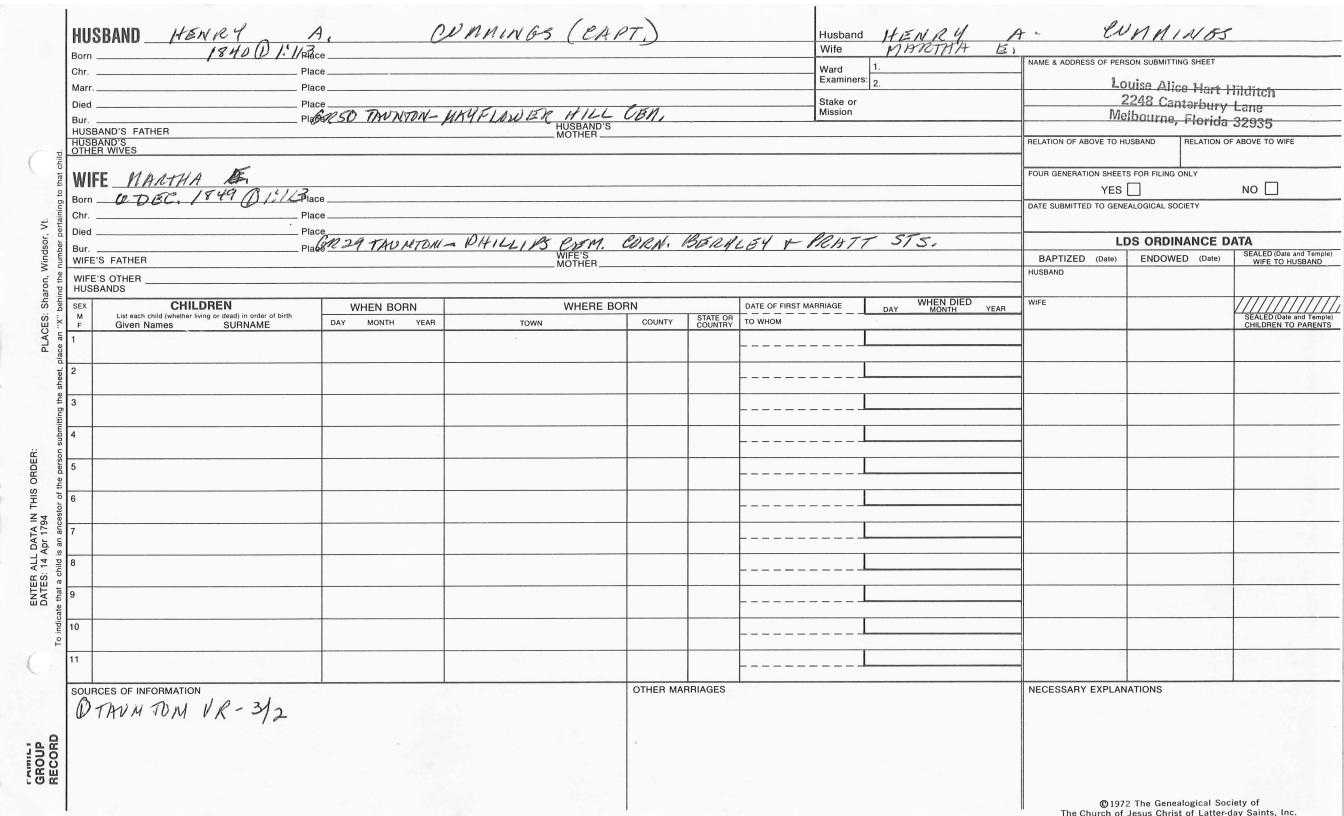 HUSBAND HENRY A. CUMMINGS (CAPT.)
Born 1840 ① 1:113 Place
Chr. Place
Marr. Place
Died Place
Bur. Place GR50 TAUNTON- MAYFLOWER HILL CEM.
HUSBAND'S FATHER HUSBAND'S MOTHER
HUSBAND'S OTHER WIVES
Husband HENRY A. CUMMINGS
Wife MARTHA E.
Ward Examiners: 1.
2.
Stake or Mission
NAME & ADDRESS OF PERSON SUBMITTING SHEET
Louise Alice Hart Hilditch
2248 Canterbury Lane
Melbourne, Florida 32935
RELATION OF ABOVE TO HUSBAND RELATION OF ABOVE TO WIFE
FOUR GENERATION SHEETS FOR FILING ONLY
YES NO
DATE SUBMITTED TO GENEALOGICAL SOCIETY
WIFE MARTHA E.
Born DEC. 1849 ① 1:113 Place
Chr. Place
Died Place
Bur. Place GR29 TAUNTON- PHILLIPS CEM. CORN. BERKLEY + PRATT STS.
WIFE'S FATHER WIFE'S MOTHER
WIFE'S OTHER HUSBANDS
LDS ORDINANCE DATA
BAPTIZED (Date) ENDOWED (Date) SEALED (Date and Temple) WIFE TO HUSBAND
HUSBAND
WIFE
SEALED (Date and Temple) CHILDREN TO PARENTS
SEX M F
CHILDREN
List each child (whether living or dead) in order of birth
Given Names SURNAME
WHEN BORN
DAY MONTH YEAR
WHERE BORN
TOWN COUNTY STATE OR COUNTRY
DATE OF FIRST MARRIAGE
TO WHOM
WHEN DIED
DAY MONTH YEAR
1
2
3
4
5
6
7
8
9
10
11
SOURCES OF INFORMATION
① TAUNTON VR - 3/2
OTHER MARRIAGES
NECESSARY EXPLANATIONS
©1972 The Genealogical Society of
The Church of Jesus Christ of Latter-day Saints, Inc.
FAMILY GROUP RECORD
ENTER ALL DATA IN THIS ORDER:
DATES: 14 Apr 1794
PLACES: Sharon, Windsor, Vt.
To indicate that a child is an ancestor of the person submitting the sheet, place an "X" behind the number pertaining to that child.